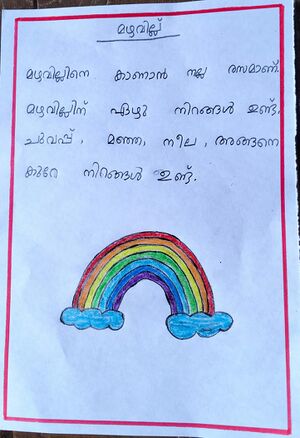 മഴവില്ല്
മഴവില്ലിനെ കാണാൻ നല്ല രസമാണ്.
മഴവില്ലിന് ഏഴു നിറങ്ങൾ ഉണ്ട്.
ചുവപ്പ്, മഞ്ഞ, നീല, അങ്ങനെ
കുറേ നിറങ്ങൾ ഉണ്ട്.